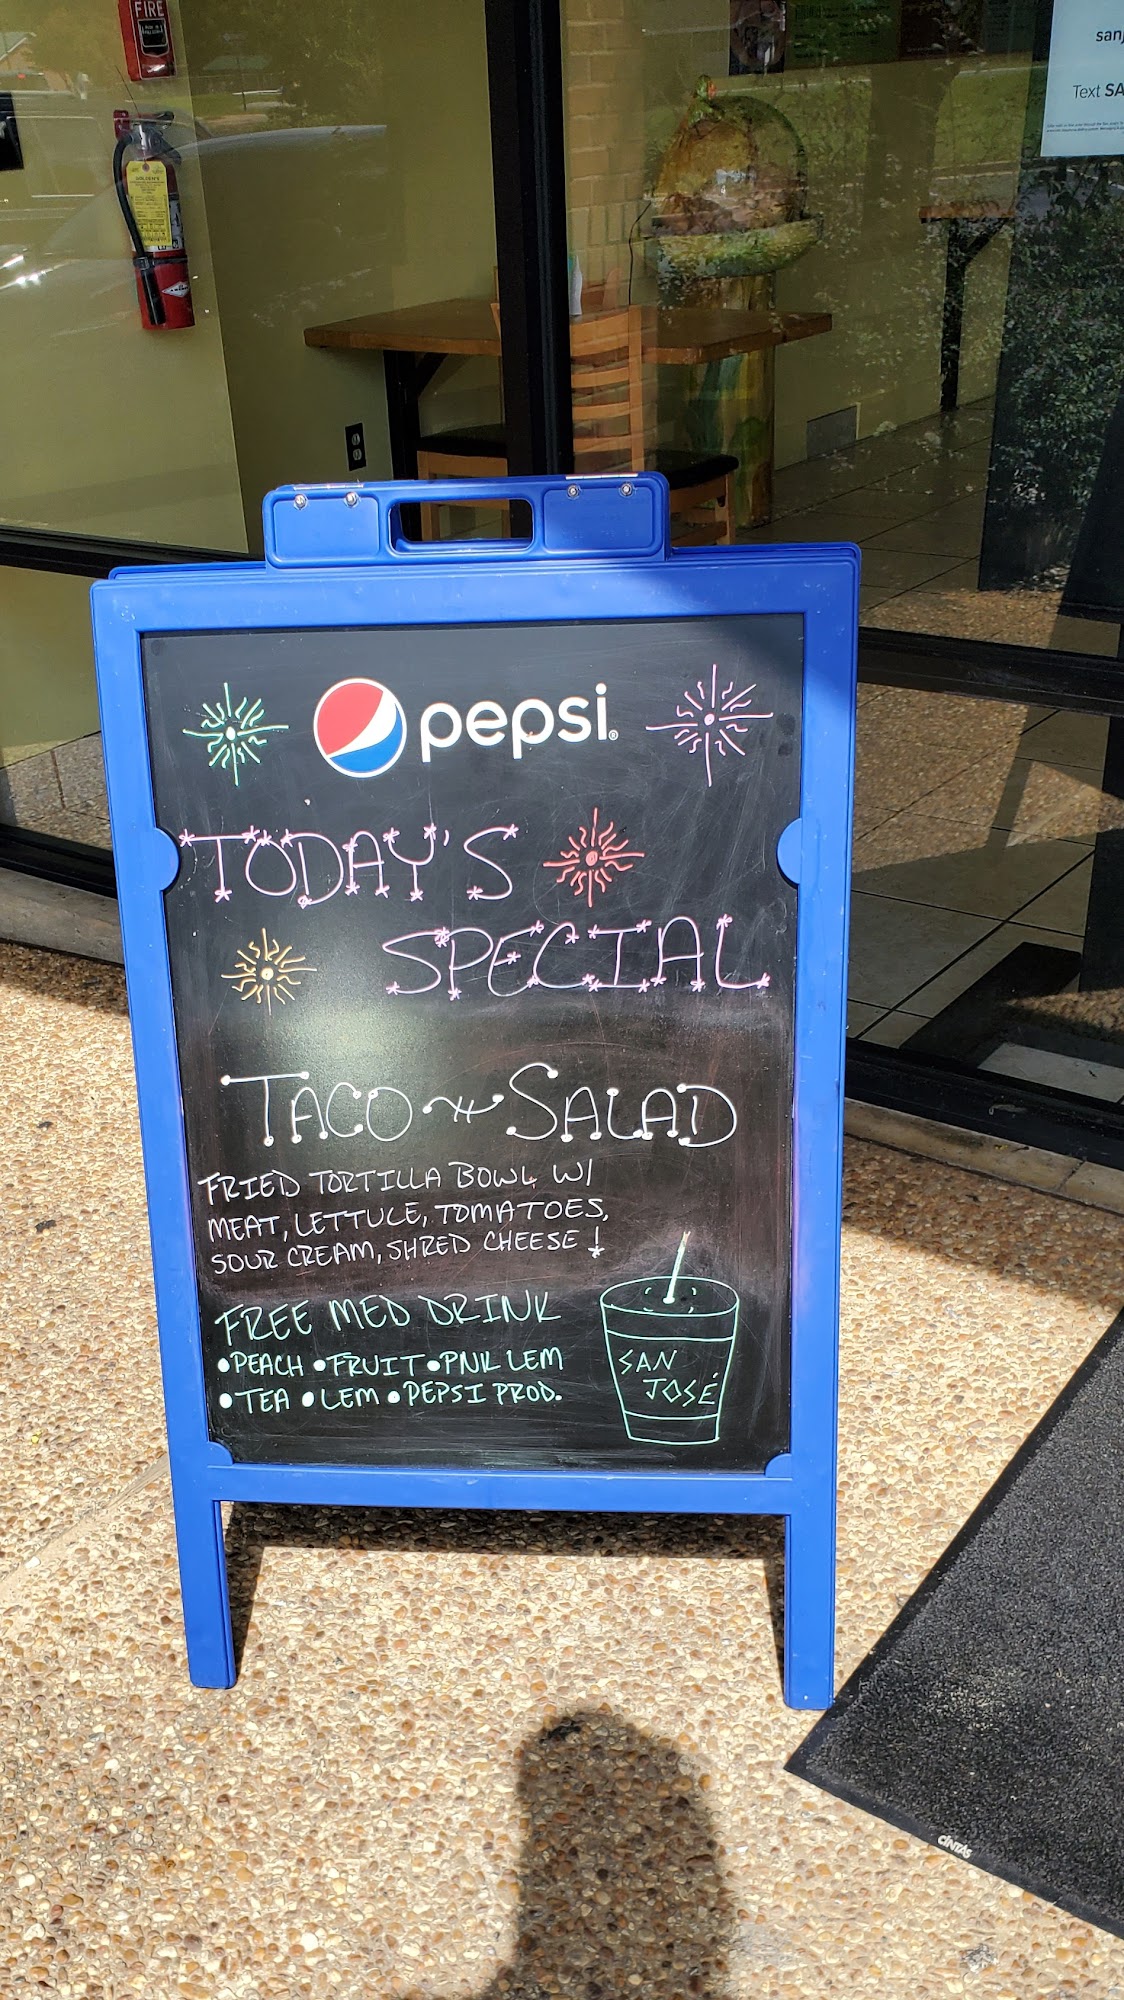 FIRE
sanj
Text SA
pepsi
TODAY'S
SPECIAL
TACO SALAD
FRIED TORTILLA BOWL W/
MEAT, LETTUCE, TOMATOES,
SOUR CREAM, SHRED CHEESE !
FREE MED DRINK
•PEACH •FRUIT •PNK LEM
•TEA •LEM •PEPSI PROD.
SAN
JOSÉ
CINTAS